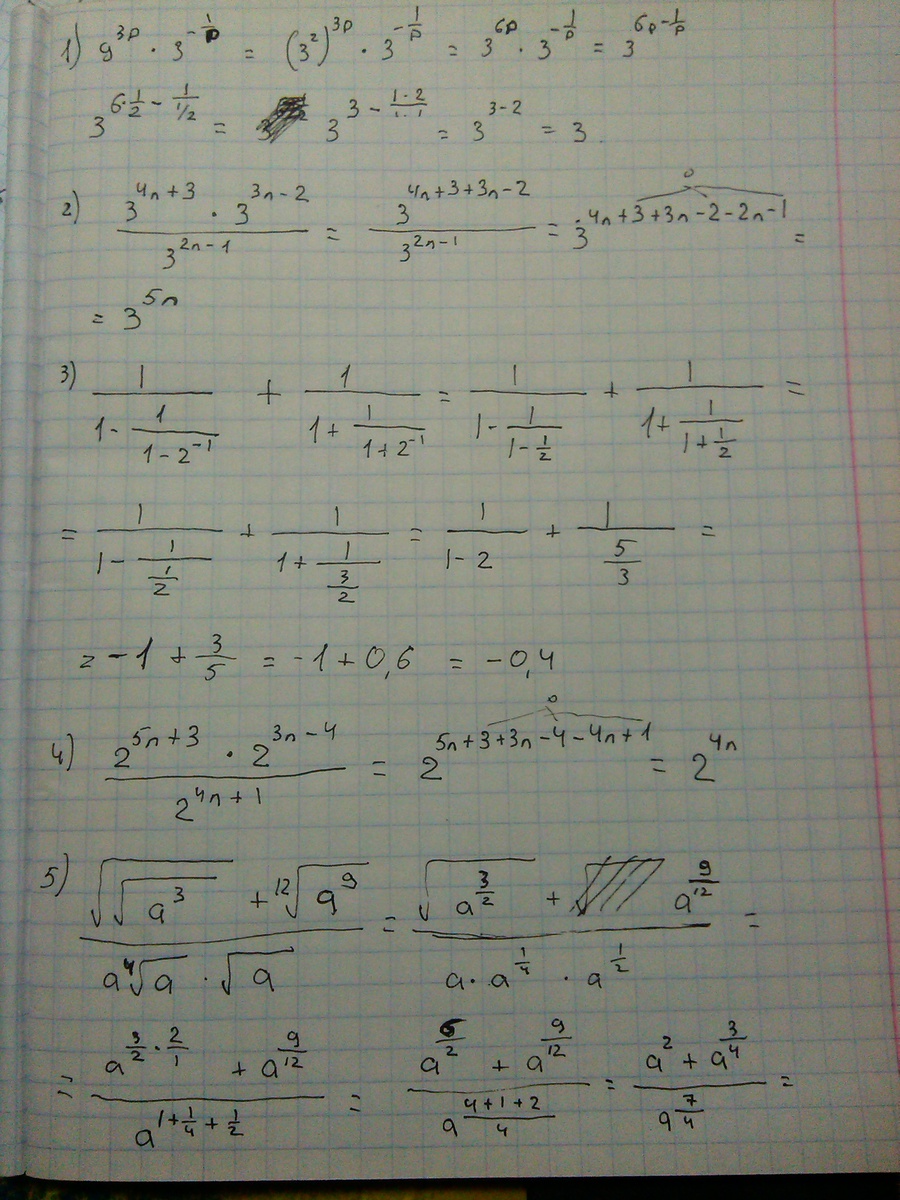 1) 9^{3p} · 3^{-\frac{1}{p}} = (3^2)^{3p} · 3^{-\frac{1}{p}} = 3^{6p} · 3^{-\frac{1}{p}} = 3^{6p-\frac{1}{p}}
3^{6·\frac{1}{2} - \frac{1}{1/2}} = 3^{3 - \frac{1·2}{1·1}} = 3^{3-2} = 3.
2) \frac{3^{4n+3} · 3^{3n-2}}{3^{2n-1}} = \frac{3^{4n+3+3n-2}}{3^{2n-1}} = 3^{4n+3+3n-2-2n-1} =
0
= 3^{5n}
3) \frac{1}{1-\frac{1}{1-2^{-1}}} + \frac{1}{1+\frac{1}{1+2^{-1}}} = \frac{1}{1-\frac{1}{1-\frac{1}{2}}} + \frac{1}{1+\frac{1}{1+\frac{1}{2}}} =
= \frac{1}{1-\frac{1}{\frac{1}{2}}} + \frac{1}{1+\frac{1}{\frac{3}{2}}} = \frac{1}{1-2} + \frac{1}{\frac{5}{3}} =
= -1 + \frac{3}{5} = -1 + 0,6 = -0,4
4) \frac{2^{5n+3} · 2^{3n-4}}{2^{4n+1}} = 2^{5n+3+3n-4-4n+1} = 2^{4n}
0
5) \frac{\sqrt{\sqrt{a^3}} + \sqrt[12]{a^9}}{a\sqrt[4]{a} · \sqrt{a}} = \frac{\sqrt{a^{\frac{3}{2}}} + a^{\frac{9}{12}}}{a · a^{\frac{1}{4}} · a^{\frac{1}{2}}} =
= \frac{a^{\frac{3}{2}·\frac{2}{1}} + a^{\frac{9}{12}}}{a^{1+\frac{1}{4}+\frac{1}{2}}} = \frac{a^{\frac{6}{2}} + a^{\frac{9}{12}}}{a^{\frac{4+1+2}{4}}} = \frac{a^2 + a^{\frac{3}{4}}}{a^{\frac{7}{4}}} =